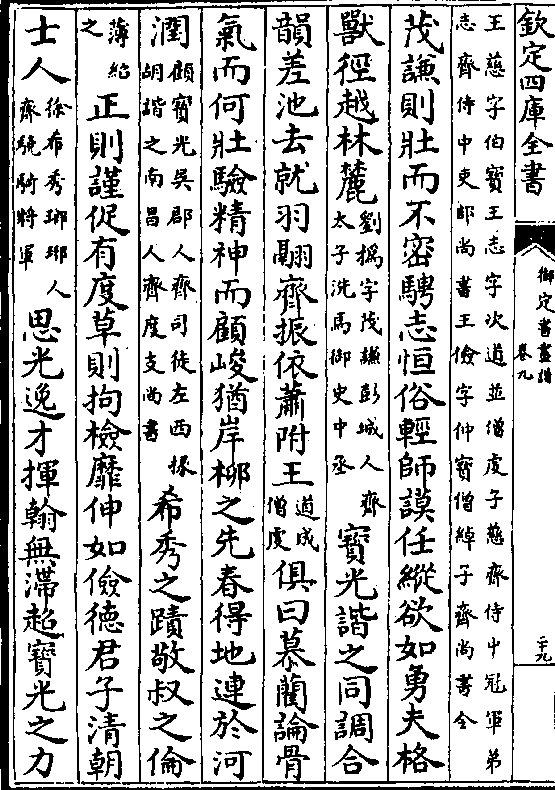 欽定四庫全書
御定書畫譜
卷九
三九
王慈字伯寶王志字次道並僧䖍子慈齊侍中冠軍弟
志齊侍中吏部尚書王儉字仲寶僧綽子齊尚書令
茂謙則壯而不密騁志恒俗輕師謨任縱欲如勇夫格
獸徑越林麓
劉撝字茂謙彭城人齊
太子洗馬御史中丞
寳光諧之同調合
韻差池去就羽翮齊振依蕭附王
道成
僧䖍
俱曰慕藺論骨
氣而何壯驗精神而顧峻猶岸柳之先春得地連於河
潤
顧寳光吳郡人齊司徒左西掾
胡諧之南昌人齊度支尚書
希秀之蹟敬叔之倫
薄紹
之
正則謹促有度草則拘檢靡伸如儉德君子清朝
士人
徐希秀瑯琊人
齊驍騎將軍
思光逸才揮翰無滯超寳光之力